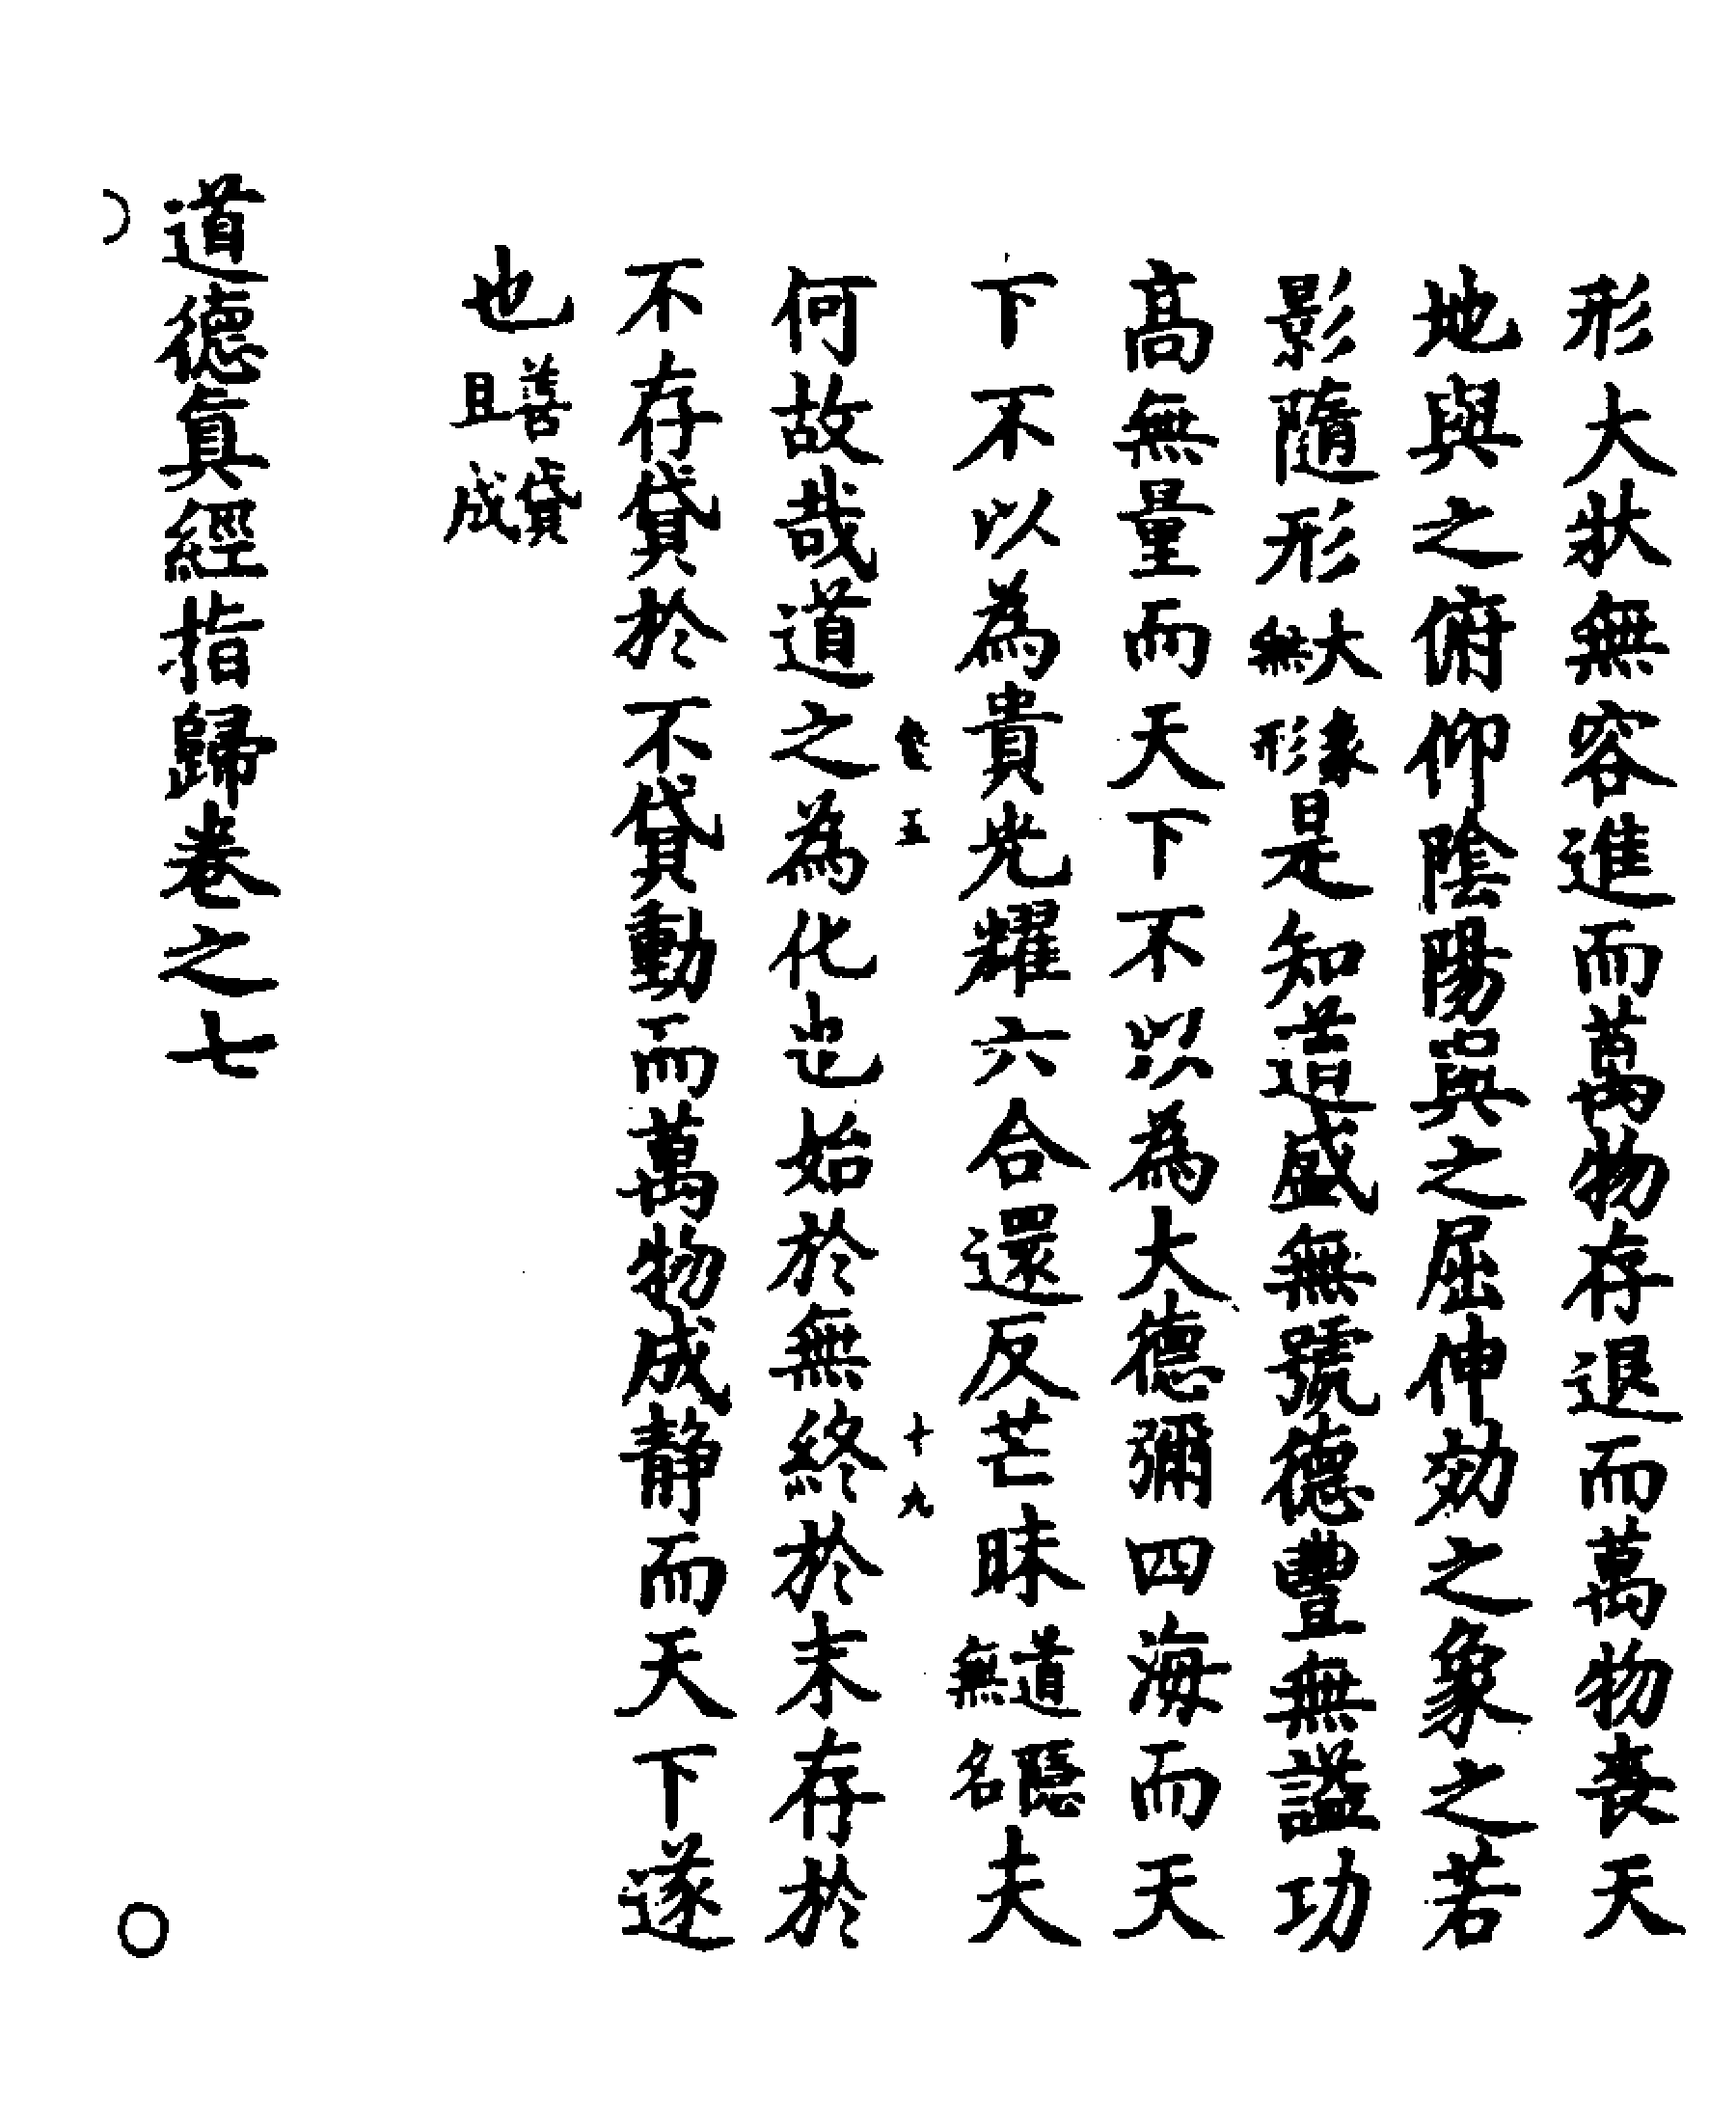 形大狀無容進而萬物存退而萬物喪天
地與之俯仰陰陽與之屈伸効之象之若
影隨形大象無形是知道盛無號德豐無謚功
高無量而天下不以為大德彌四海而天
下不以為貴光耀六合還反芒昧道隱無名夫
五
十九
何故哉道之為化也始於無終於末存於
不存貸於不貸動而萬物成静而天下遂
也善貸且成
道德真經指歸卷之七